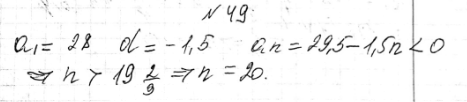 № 49
a₁ = 28 d = -1,5 aₙ = 29,5 - 1,5n < 0
⇒ n > 19 2/9 ⇒ n = 20.